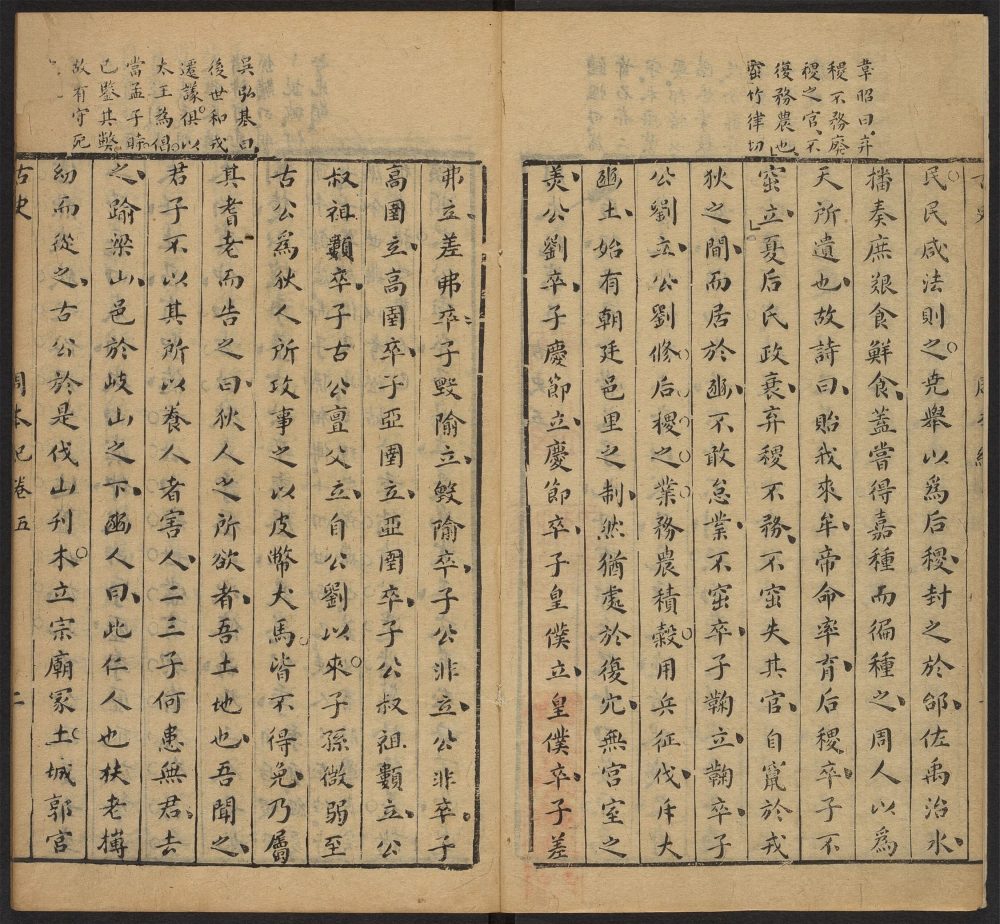 韋昭曰弃
稷不務廢
稷之官不
復務農也
窋竹律切
民民咸法則之堯舉以爲后稷封之於邰佐禹治水
播奏庶艱食鮮食蓋嘗得嘉種而徧種之周人以爲
天所遺也故詩曰貽我來牟帝命率育后稷卒子不
窋立夏后氏政衰弃稷不務不窋失其官自竄於戎
狄之間而居於豳不敢怠業不窋卒子鞠立鞠卒子
公劉立公劉修后稷之業務農積糓用兵征伐斥大
豳土始有朝廷邑里之制然猶處於復穴無宫室之
羙公劉卒子慶節立慶節卒子皇僕立皇僕卒子差
弗立差弗卒子毀隃立毀隃卒子公非立公非卒子
高圉立高圉卒子亞圉立亞圉卒子公叔祖纇立公
叔祖纇卒子古公亶父立自公劉以來子孫微弱至
古公爲狄人所攻事之以皮幣犬馬皆不得免乃屬
其耆老而告之曰狄人之所欲者吾土地也吾聞之
君子不以其所以養人者害人二三子何患無君去
之踰梁山邑於岐山之下豳人曰此仁人也扶老携
幼而從之古公於是伐山刋木立宗廟冢土城郭宫
吳弘基曰
後世和戎
遷議俱以
太王爲倡
當孟子時
已鑒其弊
故有守死
古史 周本紀卷五 二